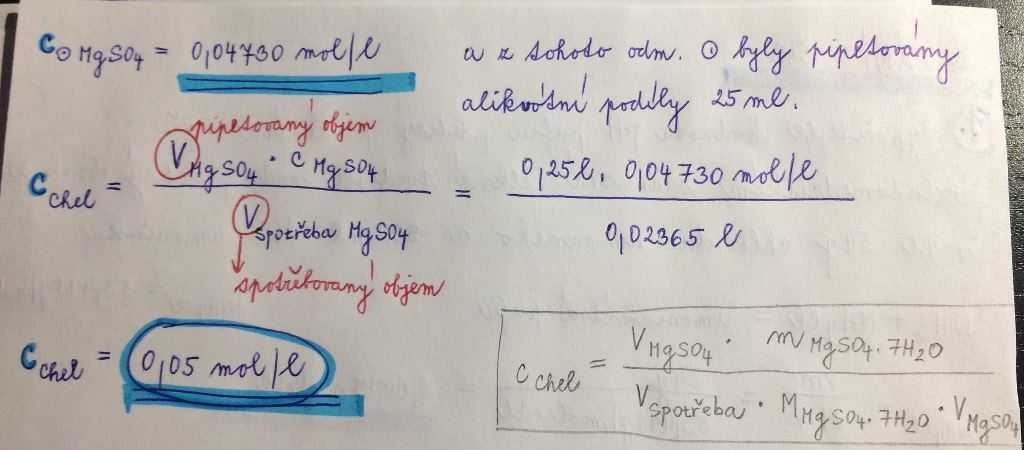 c⊙ MgSO₄ = 0,04730 mol/l
a z tohoto odm. ⊙ byly pipetovány
alikvótní podíly 25 ml.
pipetovaný objem
c Chel = V MgSO₄ · c MgSO₄ / V spotřeba MgSO₄ = 0,25 l · 0,04730 mol/l / 0,02365 l
spotřebovaný objem
c Chel = 0,05 mol/l
c Chel = V MgSO₄ · m MgSO₄·7H₂O / V spotřeba · M MgSO₄·7H₂O · V MgSO₄